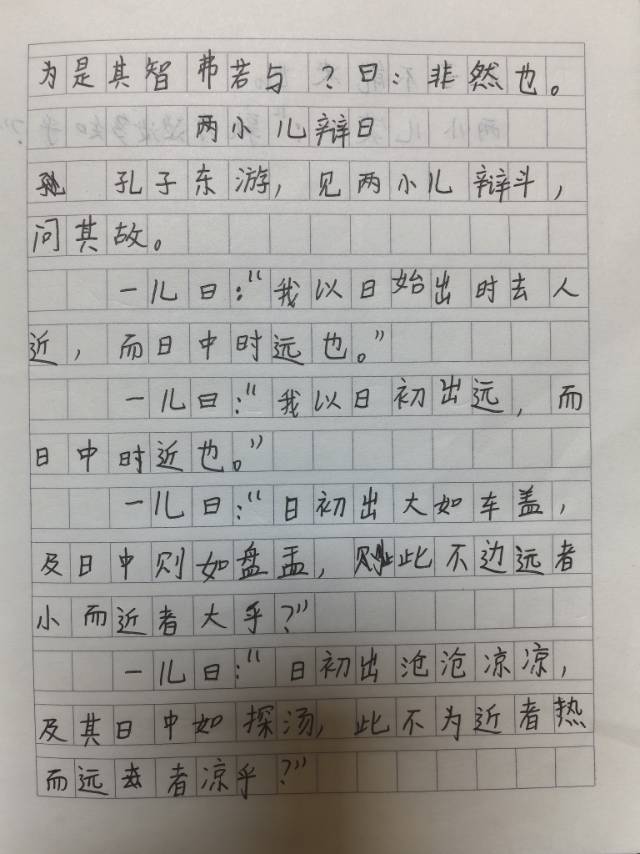 为是其智弗若与？曰：非然也。
两小儿辩日
孔子东游，见两小儿辩斗，
问其故。
一儿曰：“我以日始出时去人
近，而日中时远也。”
一儿曰：“我以日初出远，而
日中时近也。”
一儿曰：“日初出大如车盖，
及日中则如盘盂，此不边远者
小而近者大乎？”
一儿曰：“日初出沧沧凉凉，
及其日中如探汤，此不为近者热
而远者凉乎？”